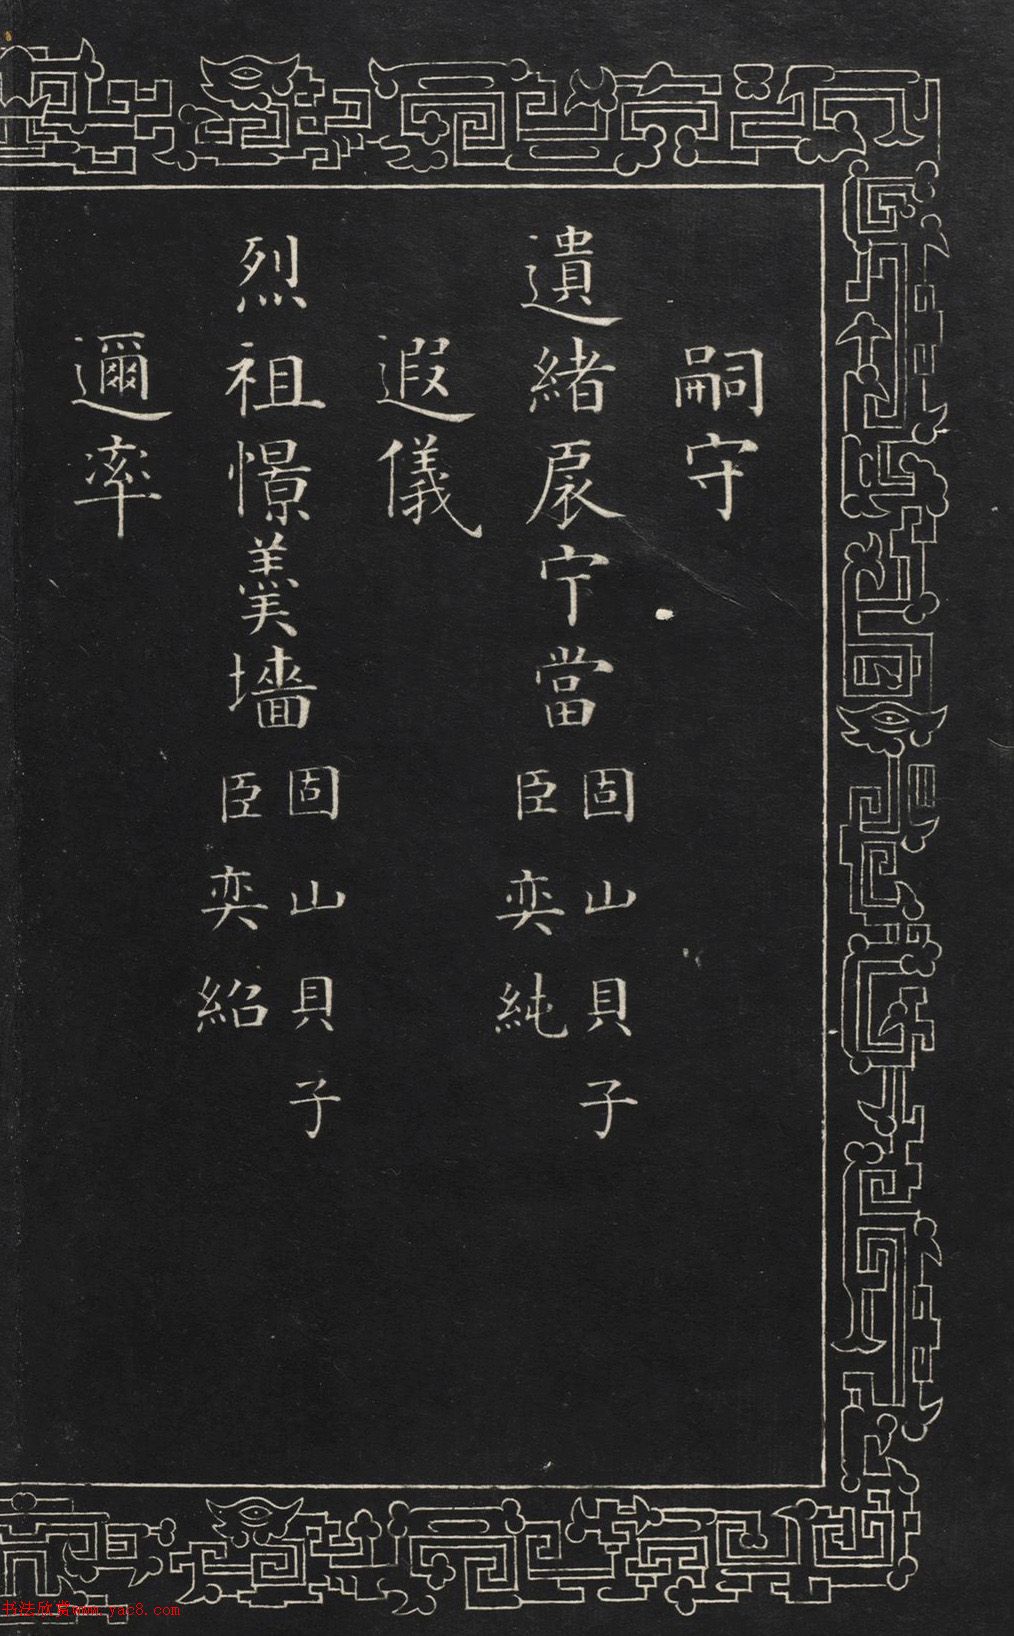 嗣守
遺緒扆宁當
固山貝子
臣奕純
遐儀
烈祖憬羹墻
固山貝子
臣奕紹
邇率
书法欣赏www.yac8.com